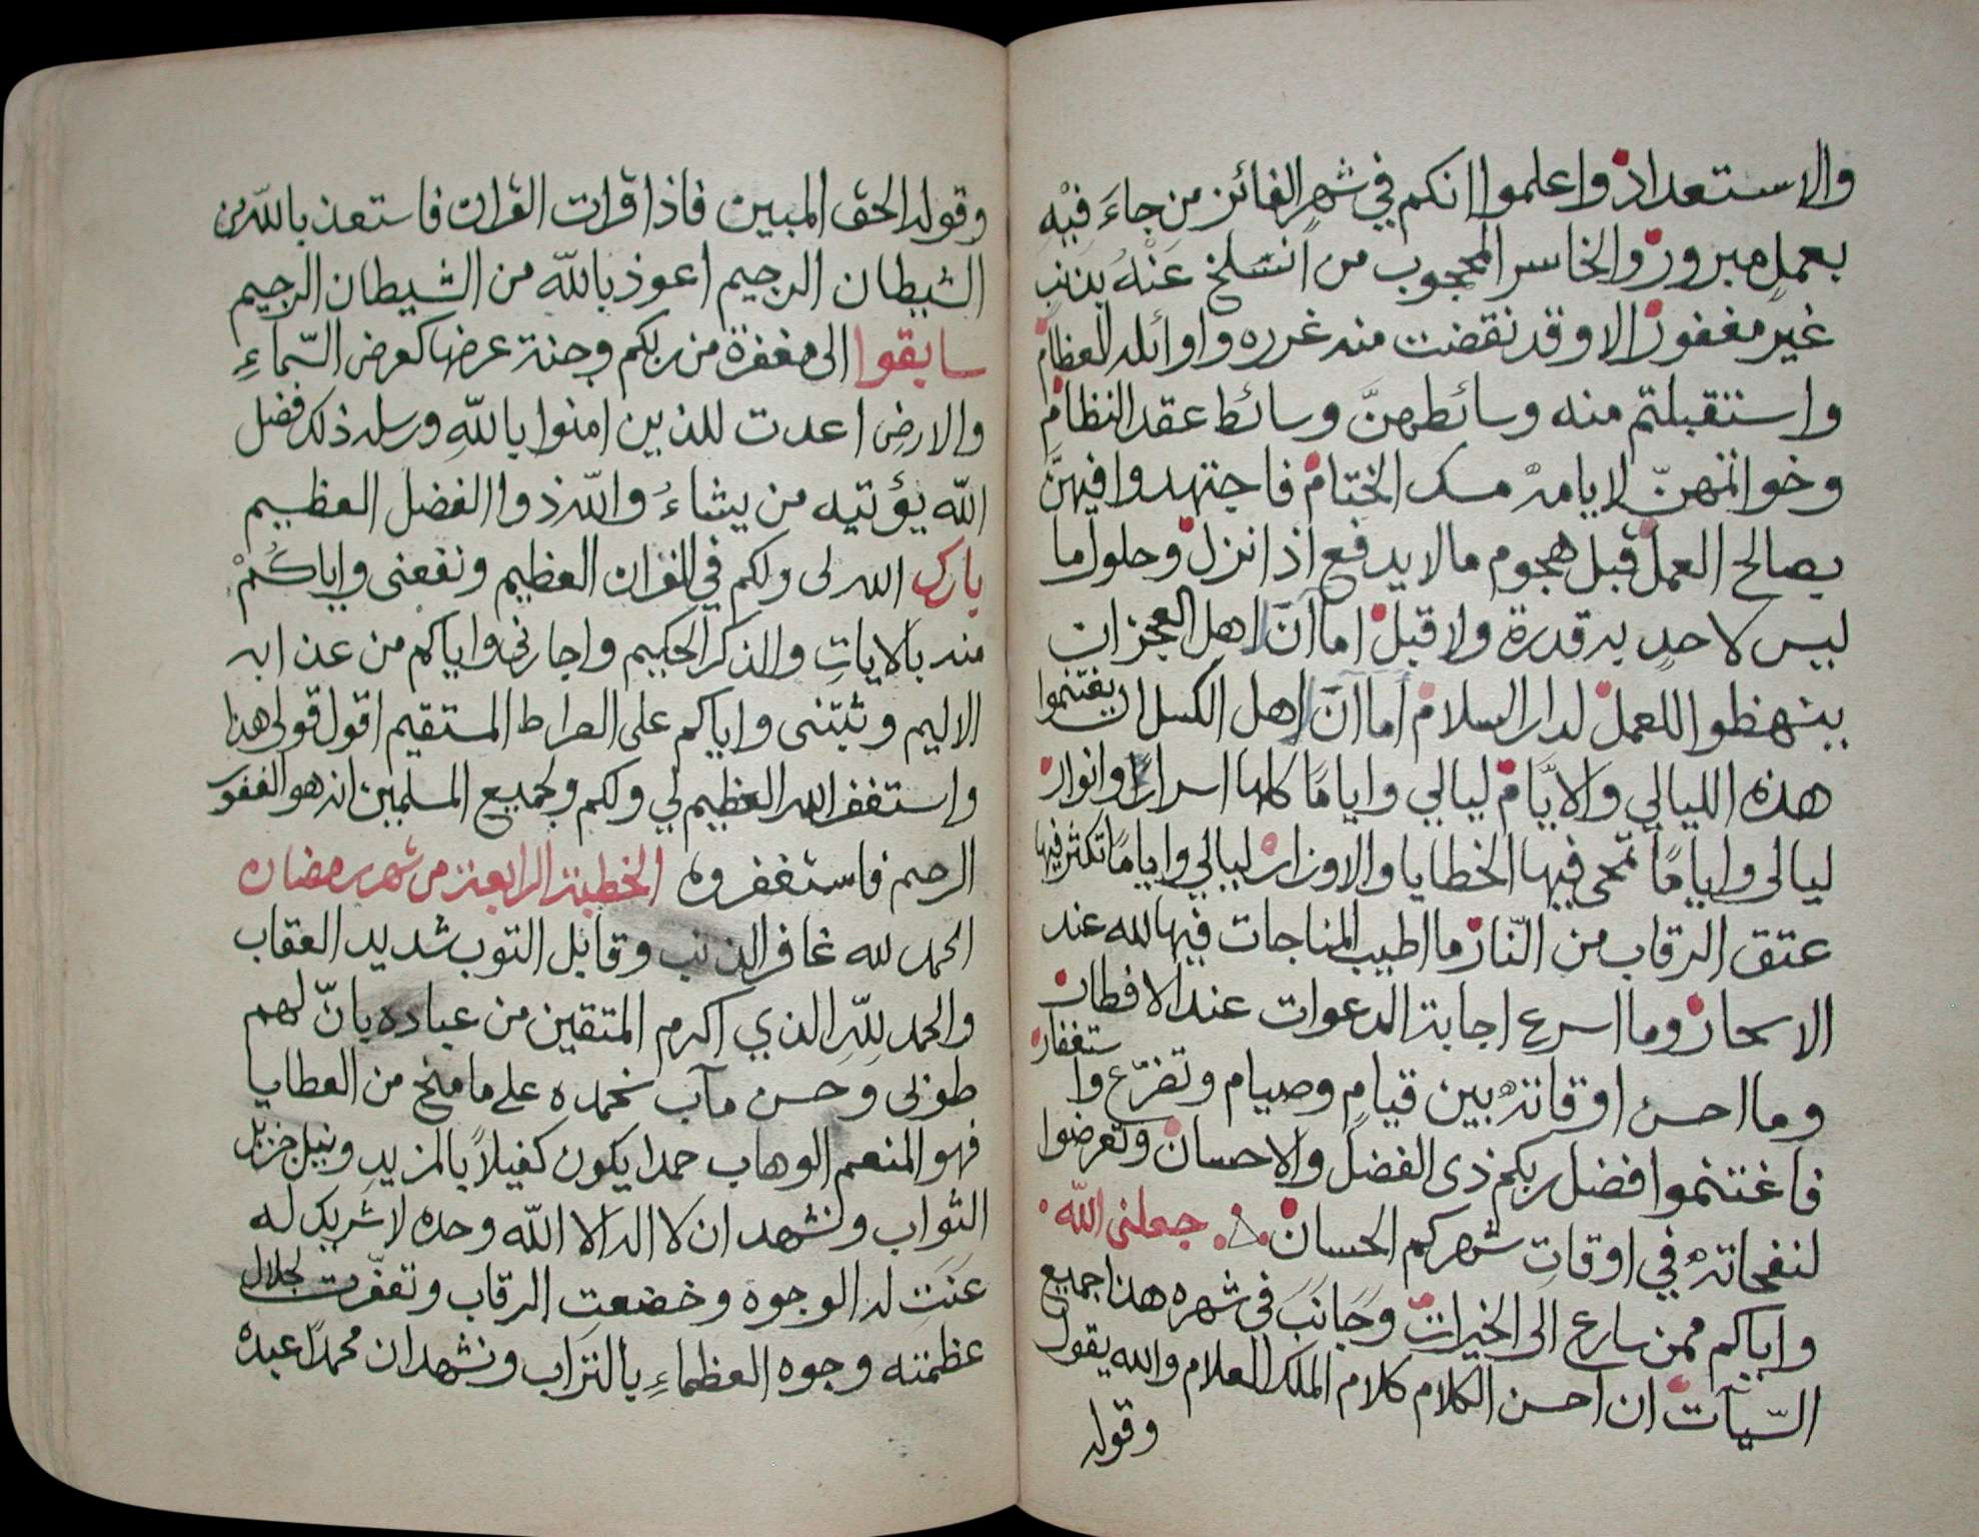 والاستعداد واعلموا انكم في شهر الفائز من جاءَ فيْهِ
بعملٍ مبرور والخاسر المحجوب من انسَلخ عَنْهُ بذنب
غير مغفور الا وقد نقضت منه غرره واوائله العظام
واستقبلتم منه وسائطهنَّ وسائط عقد النظام
وخواتمهنّ لايامه مسك الختام فاجتهدوا فيهنَّ
بصالح العمل قبل هجوم ما لا يدفع اذا نزل وحلول ما
ليس لاحدٍ به قدرة ولا قبل اما آنَ لاهل العجز ان
ينهظوا للعمل لدار السلام اما آنَ لاهل الكسل ان يغتنموا
هذه الليالي والايَّام ليالي واياما كلها اسرار وانوار
ليالى واياماً تمحى فيها الخطايا والاوزار ليالي واياماً تكثر فيها
عتق الرقاب من النّار ما اطيب المناجات فيها لله عند
الاسحار وما اسرع اجابة الدعوات عند الافطار
وما احسن اوقاته بين قيامٍ وصيام وتضرّع وا ستغفار
فاغتنموا فضل ربكم ذى الفضل والاحسان وتعرضوا
لنفحاته في اوقاتِ شهركم الحسان جعلني الله
واياكم ممن سارع الى الخيرات وَجَانَبَ في شهره هذا جميع
السّيآت ان احسن الكلام كلام الملك العلام والله يقول
وقوله
وقوله الحق المبين فاذا قرات القران فاستعذ بالله من
الشيطان الرجيم اعوذ بالله من الشيطان الرجيم
سابقوا الى مغفرة من ربكم وجنة عرضها كعرض السّماءِ
والارض اعدت للذين امنوا باللهِ ورسله ذلك فضل
الله يؤتيه من يشاءُ والله ذوا الفضل العظيم
بارك الله لى ولكم في القران العظيم ونفعنى واياكُمْ
منه بالاياتِ والذكر الحكيم واجارني واياكم من عذابه
الاليم وثبتنى واياكم على الصراط المستقيم اقول قولى هذا
واستغفر الله العظيم لي ولكم ولجميع المسلمين انه هو الغفور
الرحيم فاستغفروه الخطبة الرابعة من شهر رمضان
الحمد لله غافر الذنب وقابل التوب شديد العقاب
والحمد للهِ الذي اكرم المتقين من عباده بانّ لهم
طوبى وحسن مآب نحمده على ما منح من العطايا
فهو المنعم الوهاب حمدا يكون كفيلاً بالمزيدِ ونيل جزيل
الثواب ونشهد ان لا اله الا الله وحده لا شريك له
عَنَتِ له الوجوه وخضعتِ الرقاب وتعفّرت لجلال
عظمته وجوه العظماءِ بالتراب ونشهد ان محمداً عبده